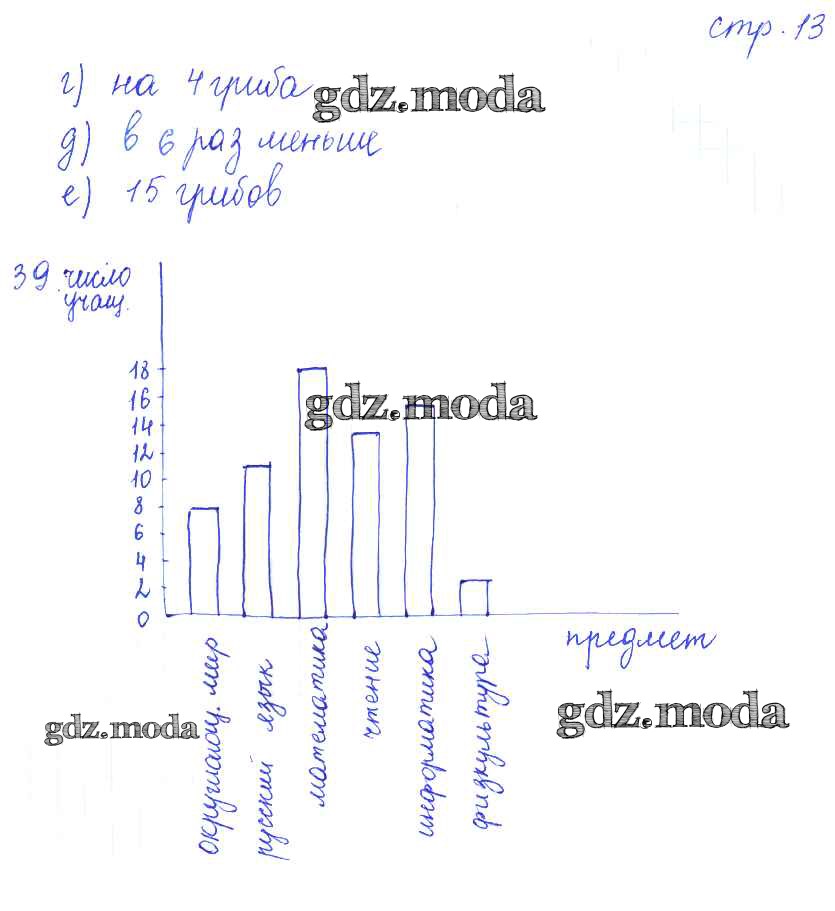 стр. 13
г) на 4 гриба
gdz.moda
д) в 6 раз меньше
е) 15 грибов
39. число
учащ.
18
16
gdz.moda
14
12
10
8
6
4
2
0
предмет
окружающ. мир
русский язык
математика
чтение
информатика
физкультура
gdz.moda
gdz.moda